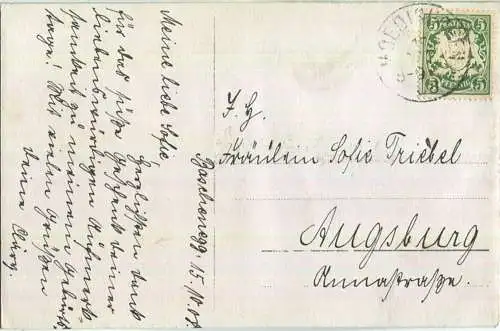 Meine liebe Sofie,
Herzlichsten Dank
für das süße Geschenk deiner
liebenswürdigen Aufmerk-
samkeit zu meinem Geburts-
tage! Mit vielen Grüßen
deine
15.
5 5
5 5
F. H.
Fräulein Sofie Triebel
Augsburg
Annastraße.